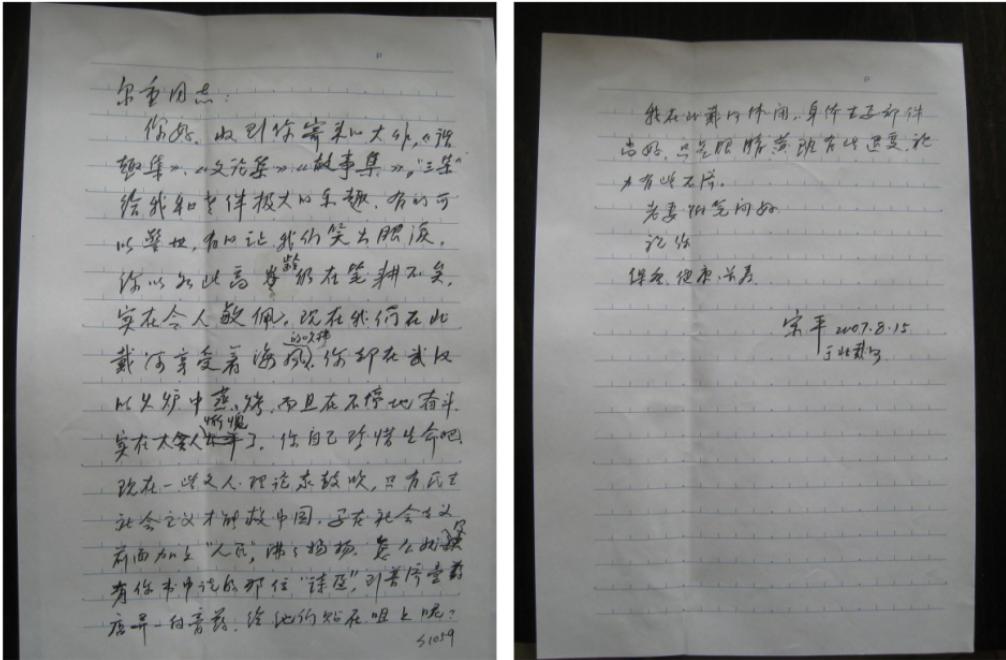 尔重同志：
你好。收到你寄来的大作，《谐
趣集》、《文论集》《故事集》，"三集"
给我和老伴极大的乐趣，有的可
以警世，有的让我们笑出眼泪。
你以如此高龄仍在笔耕不矣，
实在令人敬佩。现在我们在北
戴河享受着海风的吹拂，你却在武汉
的火炉中蒸烤，而且在不停地奋斗
实在太令人惭愧了。你自己珍惜生命吧
现在一些文人、理论家鼓吹，只有民主
社会主义才能救中国，子在社会主义
前面加上"人民"，沸沸扬扬，怎么就没
有你书中说的那位"诗医"，到普济堂药
店弄一付膏药，给他们贴在咀上呢？
S1059
我在北戴河休闲，身体主要部件
尚好，只是眼睛黄斑有些退变，视
力有些不济。
老妻附笔问好
祝你
保重、健康、长寿
宋平 2007.8.15
于北戴河